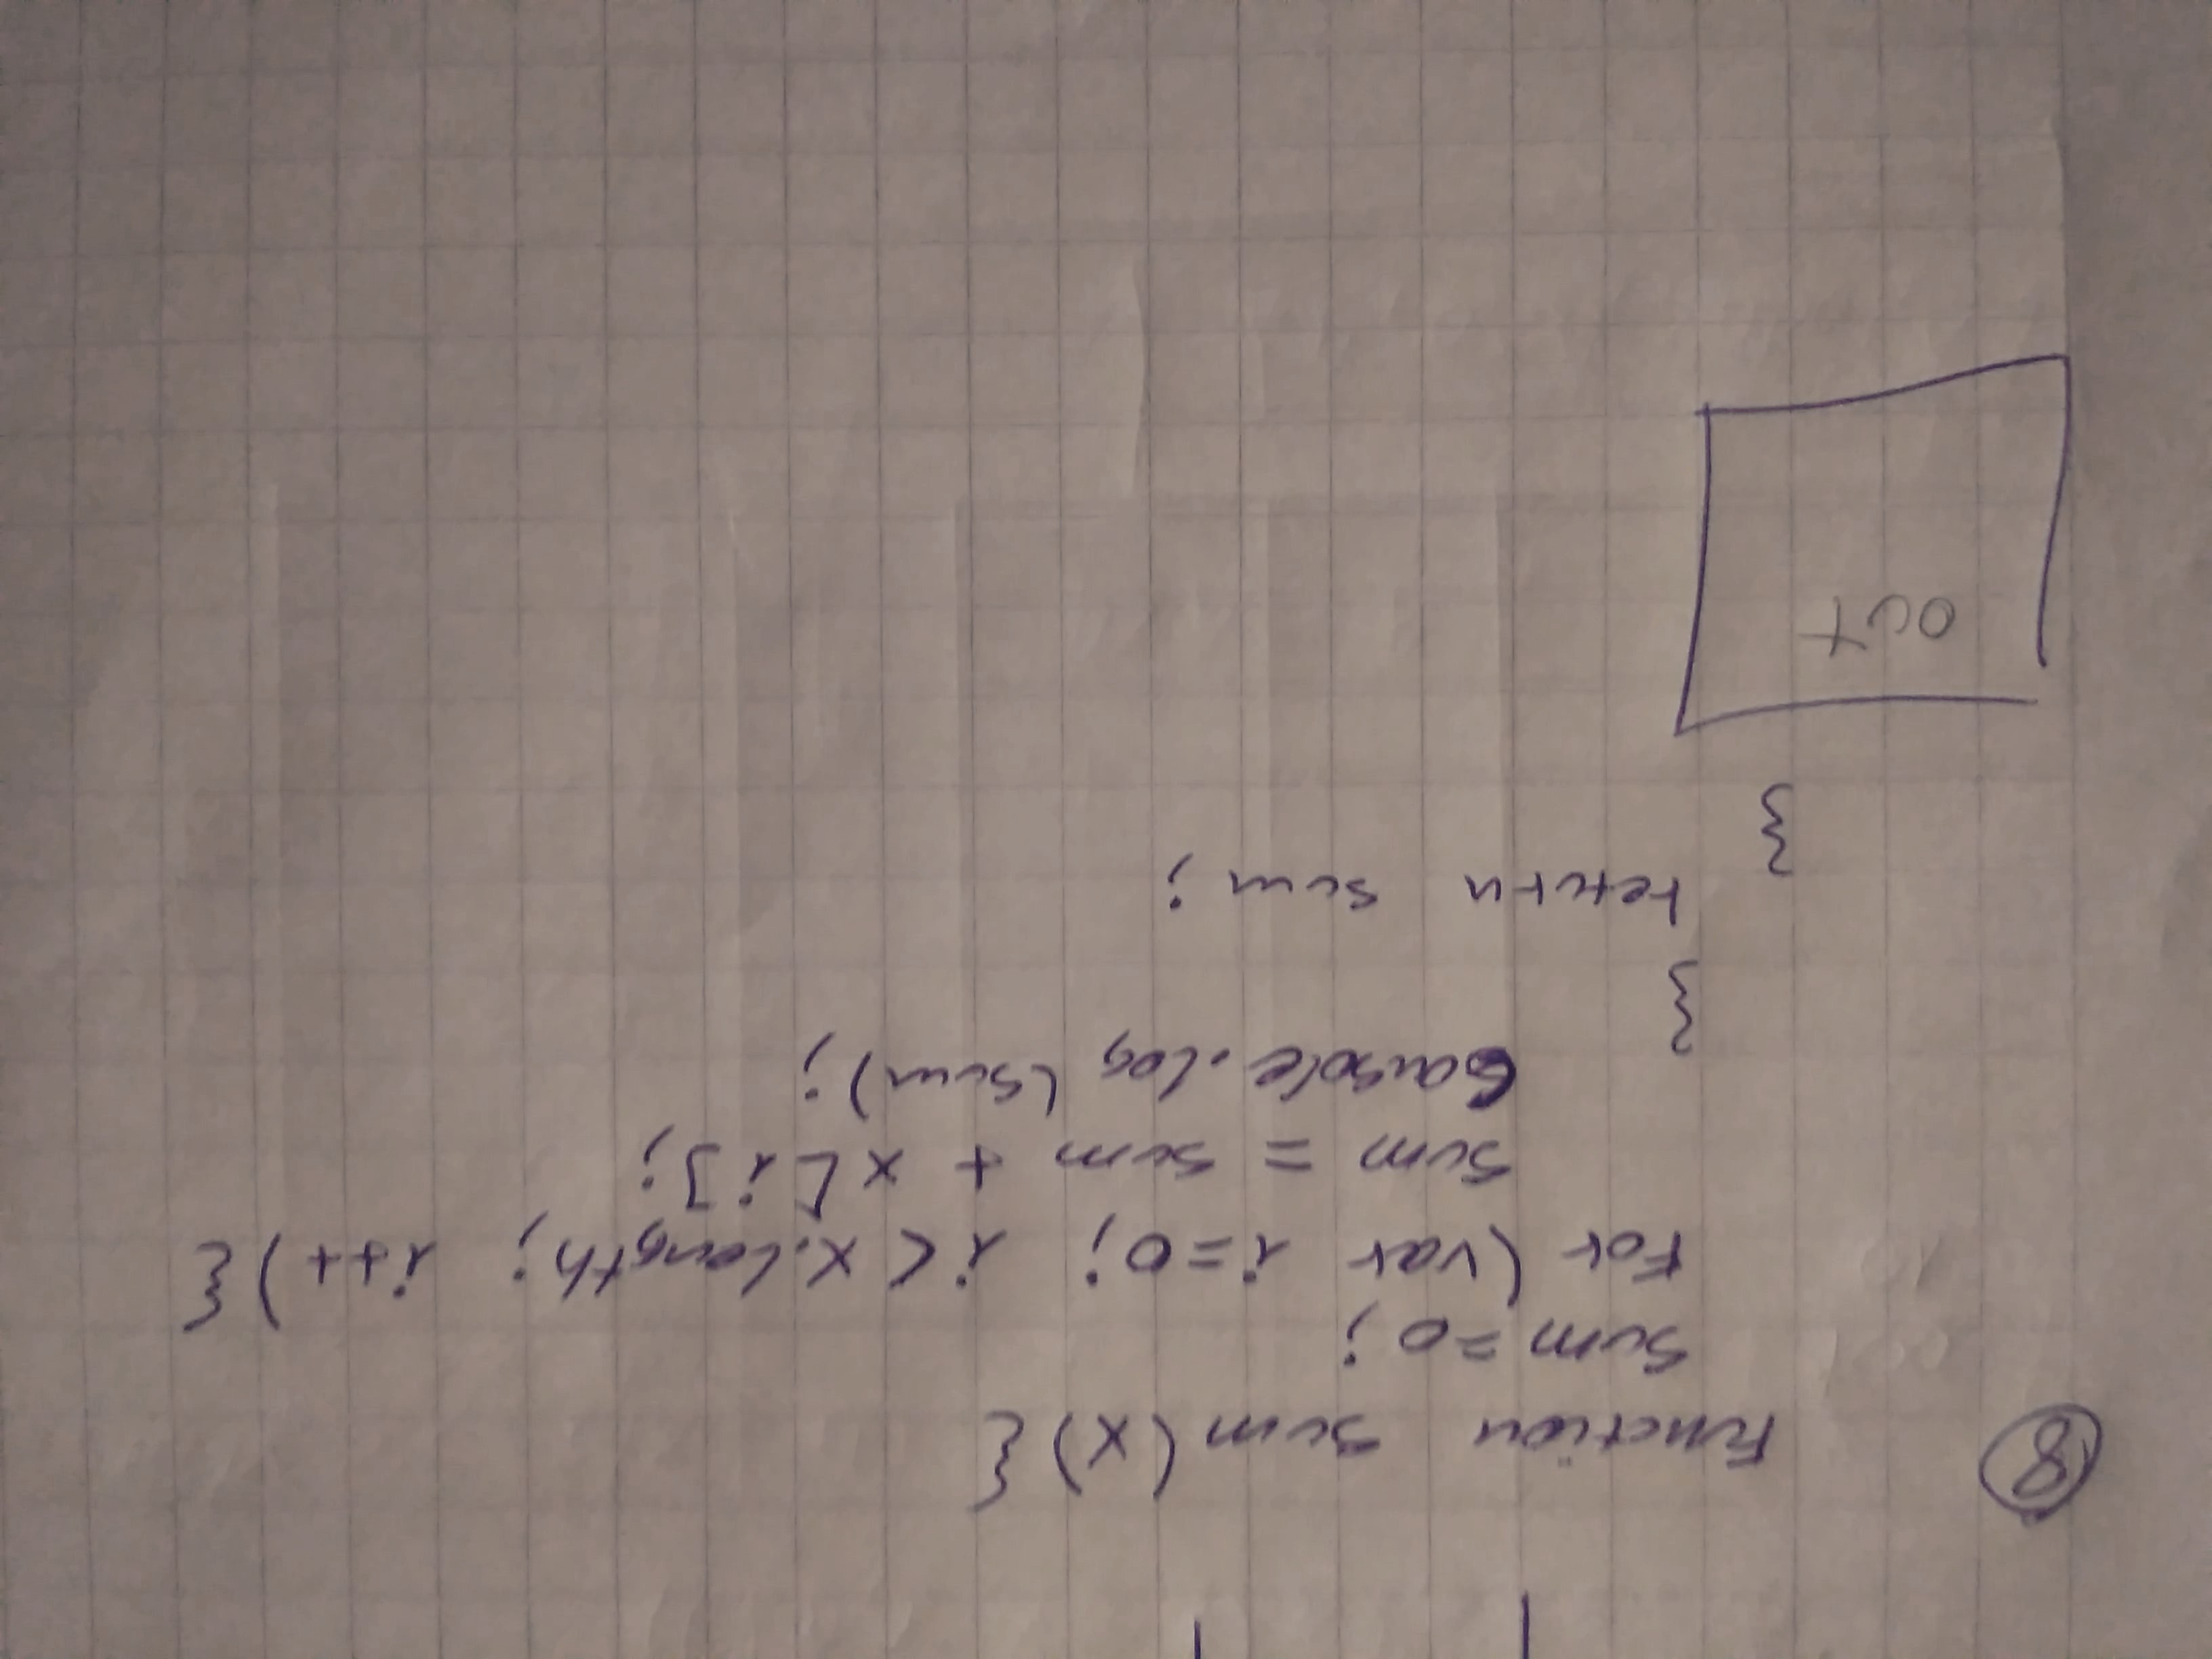 8
Function sum (x) {
sum = 0;
For (var i=0; i < x.length; i++) {
sum = sum + x[i];
console.log (sum);
}
return sum;
}
out